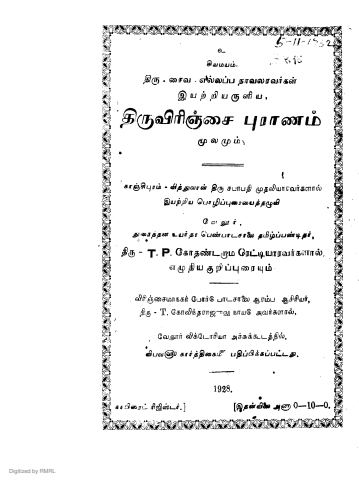 5-11-1932
உ
சிவமயம்.
திரு - சைவ - எல்லப்ப நாவலரவர்கள்
இயற்றியருளிய,
திருவிரிஞ்சை புராணம்
மூலமும்,
காஞ்சிபுரம் - வித்துவான் திரு சபாபதி முதலியாரவர்களால்
இயற்றிய பொழிப்புரையைத்தழுவி
வேலூர்,
அரசாதன உயர்தர பெண்பாடசாலை தமிழ்ப்பண்டிதர்,
திரு - T. P. கோதண்டராம ரெட்டியாரவர்களால்,
எழுதியகுறிப்புரையும்
விரிஞ்சைமாநகர் போர்டு பாடசாலை ஆரம்ப ஆசிரியர்,
திரு - T. கோவிந்தராஜுலு நாயடு அவர்களால்,
வேலூர் விக்டோரியா அச்சுக்கூடத்தில்,
விபவ௵ கார்த்திகை௴ பதிப்பிக்கப்பட்டது.
1928.
காபிரைட் ரிஜிஸ்டர்.] [இதன்விலை அணா 0-10-0.
Digitized by RMRL